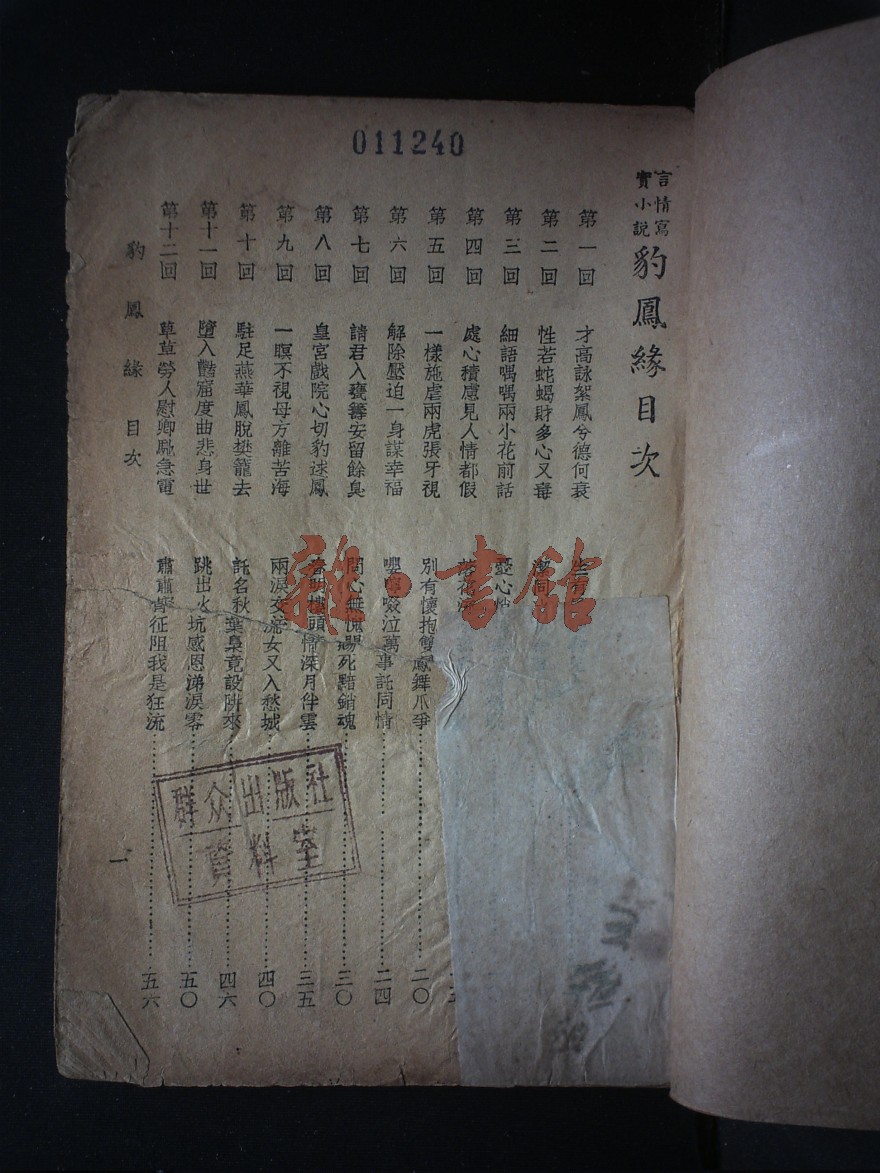 011240
言情寫
實小説
豹鳳緣目次
第一回 才高詠絮鳳兮德何衰
第二回 性若蛇蝎財多心又毒 潔同
第三回 細語喁喁兩小花前話 憂心
第四回 處心積慮見人情都假 落花
第五回 一樣施虐兩虎張牙視 別有懷抱雙鳳舞爪爭 二〇
第六回 解除壓迫一身謀幸福 嚶嚀啜泣萬事託同情 二四
第七回 請君入甕籌安留餘臭 問心無愧賜死黯銷魂 三〇
第八回 皇宮戲院心切豹迷鳳 春明樓頭情深月伴雲 三五
第九回 一瞑不視母方離苦海 兩淚交流女又入愁城 四〇
第十回 駐足燕華鳳脫樊籠去 託名秋葉梟竟設阱來 四六
第十一回 墮入豔窟度曲悲身世 跳出火坑感恩涕淚零 五〇
第十二回 草草勞人慰卿馳急電 蕭蕭 征阻我是狂流 五六
豹鳳緣 目次
一
群众出版社
資料室
雜·書館